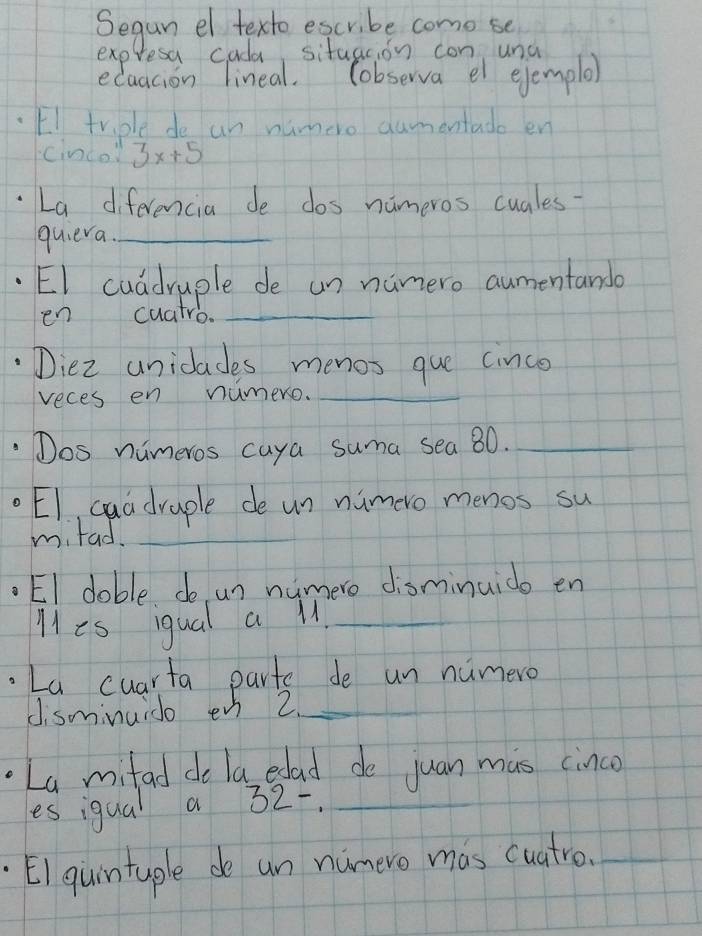 Segun el texto escribe como se
expresa cada situación con una
ecuación lineal. (observa el ejemplo)
• El triple de un número aumentado en
cinco: 3x+5
• La diferencia de dos números cuales-
quiera. ________
• El cuádruple de un número aumentando
en cuatro. ________
• Diez unidades menos que cinco
veces en número. ________
• Dos números cuya suma sea 80. ________
• El cuádruple de un número menos su
mitad. ________
• El doble de un número disminuido en
11 es igual a 11. ________
• La cuarta parte de un número
disminuido en 2. ________
• La mitad de la edad de juan más cinco
es igual a 32-. ________
• El quintuple de un número más cuatro. ________